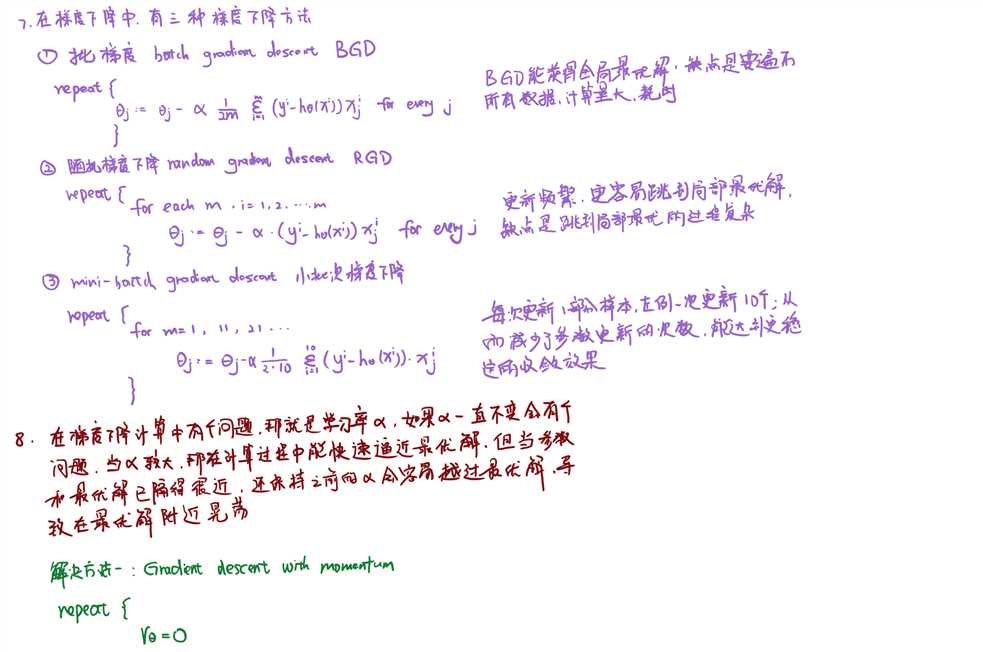 7. 在梯度下降中. 有三种梯度下降方法
① 批梯度 batch gradient descent BGD
repeat {
θj := θj - α 1/2m Σ(i=1..m) (y^i - hθ(x^i)) x_j^i for every j
}
BGD能获得全局最优解, 缺点是要遍历
所有数据, 计算量大, 耗时
② 随机梯度下降 random gradient descent RGD
repeat {
for each m, i=1,2.....m
θj := θj - α·(y^i - hθ(x^i)) x_j^i for every j
}
更新频繁, 更容易跳到局部最优解,
缺点是跳到局部最优的过程复杂
③ mini-batch gradient descent 小批次梯度下降
repeat {
for m=1, 11, 21...
θj := θj - α 1/2·10 Σ(i=1..10) (y^i - hθ(x^i))·x_j^i
}
每次更新1部分样本, 左例一次更新10个; 从
而减少了参数更新的次数, 能达到更稳
定的收敛效果
8. 在梯度下降计算中有个问题, 那就是学习率α, 如果α一直不变会有个
问题, 当α较大, 那在计算过程中能快速逼近最优解, 但当参数
和最优解已隔得很近, 还保持之前的α会容易越过最优解, 导
致在最优解附近晃荡
解决方法一: Gradient descent with momentum
repeat {
Vθ=0